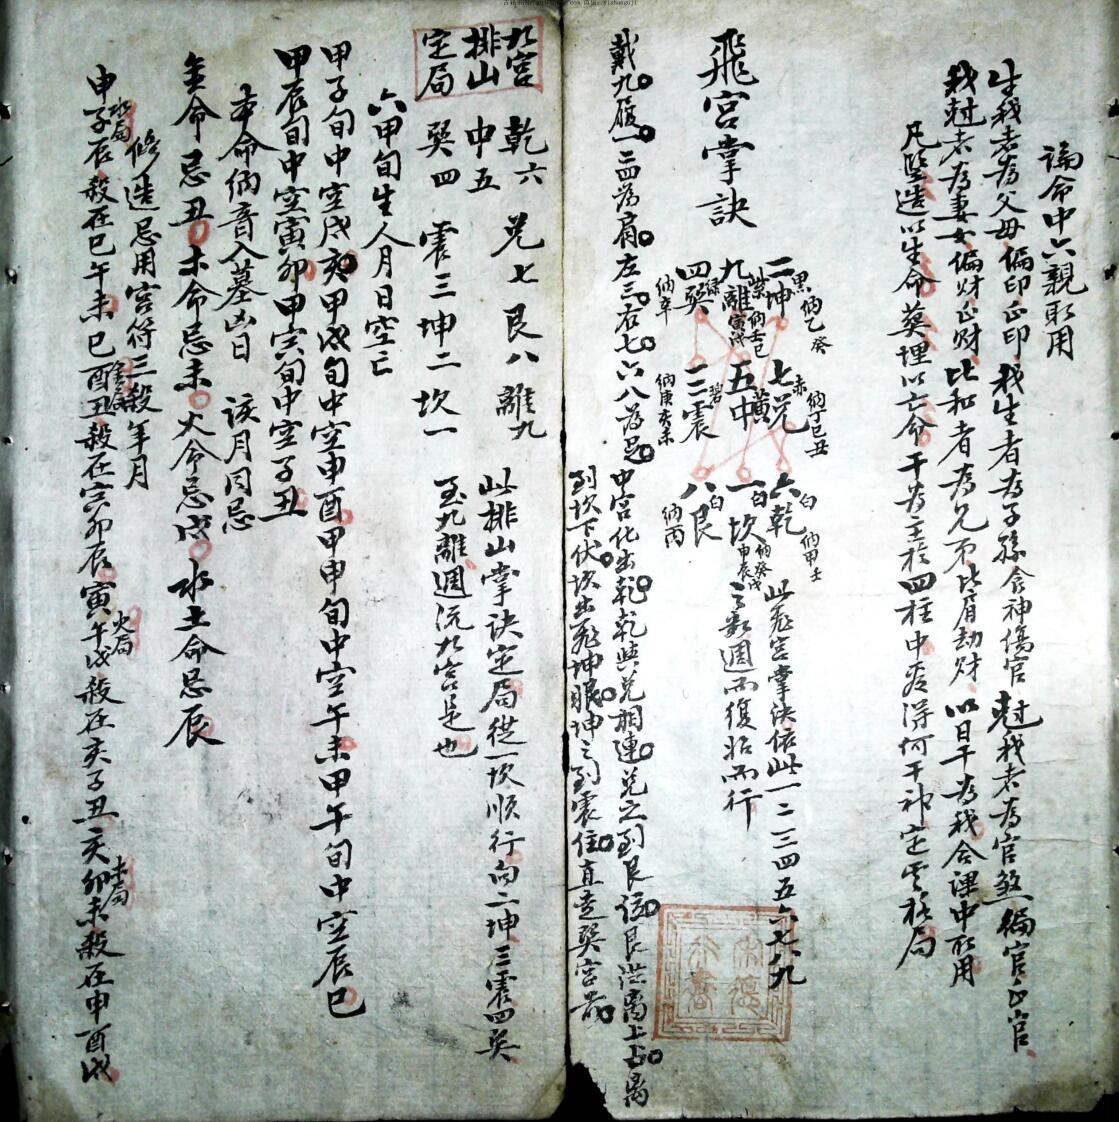 論命中六親取用
生我者為父母偏印正印 我生者為子孫食神傷官 尅我者為官煞偏官正官
我尅者為妻女偏財正財 比和者為兄弟比肩劫財 以日干為我合課中取用
凡豎造以生命 葬埋以亡命干為主
飛宮掌訣
二坤 黑 納乙癸
七兌 赤 納丁巳丑
六乾 白 納甲壬
九離 紫 納壬 寅戌
五中 黃
一坎 白 納癸 申辰
四巽 綠 納辛
三震 碧 納庚亥未
八艮 白 納丙
此飛宮掌訣依此一二三四五六七八九
之數週而復始而行
戴九履一 二四為肩 左三右七 六八為足
中宮化出乾 乾與兌相連 兌之到艮位 艮
離上占 離
到坎下伏 坎出飛坤眼 坤之到震住 直走巽宮
九宮
排山
定局
乾六 兌七 艮八 離九
中五
巽四 震三 坤二 坎一
此排山掌訣定局從一坎順行向二坤三震四巽
至九離週流九宮是也
六甲旬生人月日空亡
甲子旬中空戌亥 甲戌旬中空申酉 甲申旬中空午未 甲午旬中空辰巳
甲辰旬中空寅卯 甲寅旬中空子丑
本命納音入墓凶日 該月同忌
金命忌丑 木命忌未 火命忌戌 水土命忌辰
修造忌用宮符三殺年月
申子辰 水局 殺在巳午未 巳酉丑 金局 殺在寅卯辰 寅午戌 火局 殺在亥子丑 亥卯未 木局 殺在申酉戌